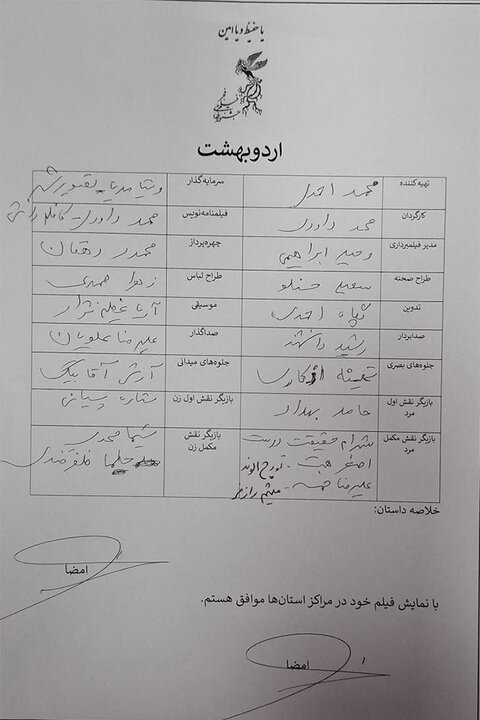 یا حفیظ و یا امین
جشنواره فیلم فجر
اردوبهشت
تهیه کننده محمد احمدی سرمایه گذار
کارگردان محمد داوودی فیلمنامه نویس محمد داوودی - کاظم دانشی
مدیر فیلمبرداری وحید ابراهیمی چهره پرداز محمود دهقان
طراح صحنه سعید حسنلو طراح لباس زهرا صمدی
تدوین احمدی موسیقی آریا عظیمی نژاد
صدابردار رشید دانشمند صداگذار علیرضا علویان
جلوه‌های بصری جلوه‌های میدانی آرش آقابیک
بازیگر نقش اول مرد حامد بهداد بازیگر نقش اول زن ستاره پسیانی
بازیگر نقش مکمل مرد شهرام حقیقت دوست
اصغر همت - تورج الوند
علیرضا - میثم رازفر
بازیگر نقش مکمل زن شیما محمدی
ظفرقندی
خلاصه داستان:
امضا
با نمایش فیلم خود در مراکز استان‌ها موافق هستم.
امضا